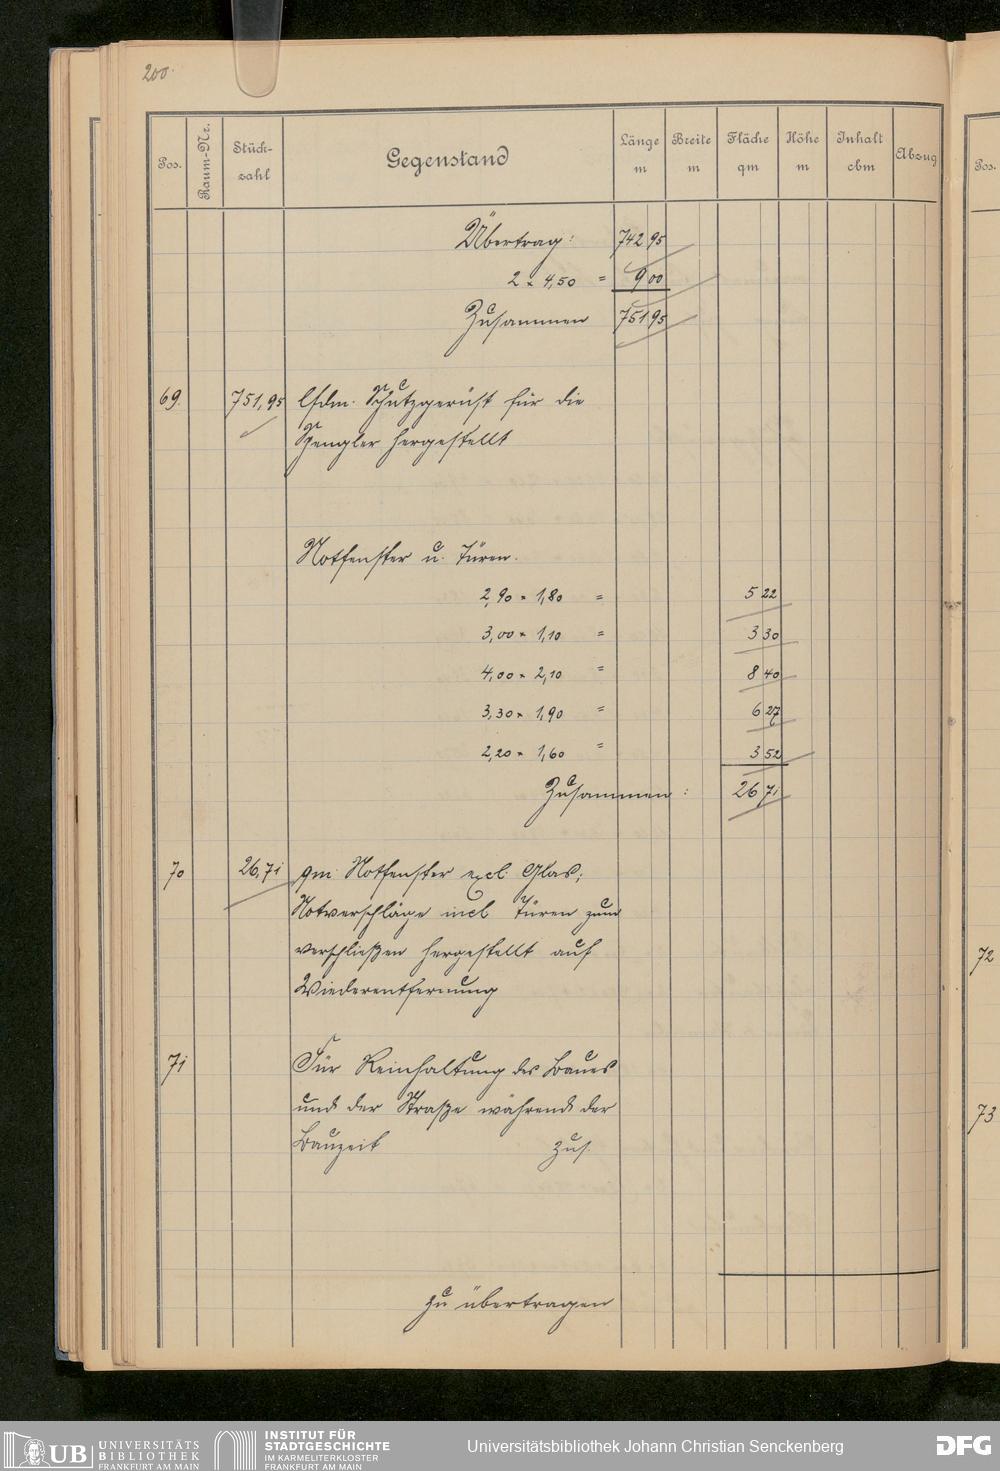 200.
Pos.
Raum-Nr.
Stück-
zahl
Gegenstand
Länge
m
Breite
m
Fläche
qm
Höhe
m
Inhalt
cbm
Abzug
Pos.
Übertrag: 742 95
2 × 4,50 = 9 00
Zusammen 751 95
69. 751,95 lfdm. Schutzgerüst für die
Spengler hergestellt
Notfenster u. Türen.
2,90 × 1,80 = 5 22
3,00 × 1,10 = 3 30
4,00 × 2,10 = 8 40
3,30 × 1,90 = 6 27
2,20 × 1,60 = 3 52
Zusammen: 26 71
70 26,71 qm Notfenster excl. Glas;
Notverschläge incl Türen zum
verschließen hergestellt auf
Wiederentfernung
71 Für Reinhaltung des Baues
und der Straße während der
Bauzeit zus.
zu übertragen
72
73
UB UNIVERSITÄTS
BIBLIOTHEK
FRANKFURT AM MAIN
INSTITUT FÜR
STADTGESCHICHTE
IM KARMELITERKLOSTER
FRANKFURT AM MAIN
Universitätsbibliothek Johann Christian Senckenberg
DFG